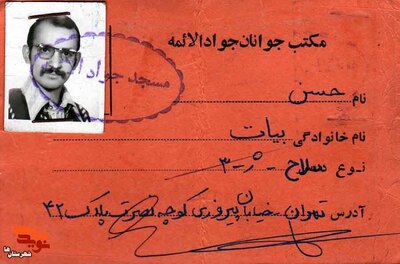 مکتب جوانان جوادالائمه
مسجد جواد ا
نام حسن
نام خانوادگی بیات
نوع سلاح ژ-۳
آدرس تهران خیابان پیروزی کوچه نصرت پلاک ۴۲
نوید
شهرستان‌ها